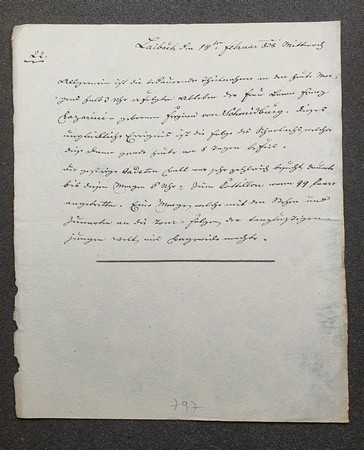 22.
Laibach den 14ten Februar 838 Mittwoch
Allgemein ist die bedauernde Theilnahme an den heut. Mor-
gens halb 3 Uhr erfolgten Ableben der Frau Baron Franz
Lazarini – geborenen Gräfinn von Schmidburg. Dieses
unglückliche Ereigniß ist die Folge des Scharlachs, welcher
diese Dame gerade heute vor 8 Tagen befiel.
Der gestrige Ball war sehr zahlreich besucht, dauerte
bis diesen Morgen 6 Uhr; zum Cotillon waren 44 Paare
angetreten. Eine Menge, welche mit dem Sehen und
Zuwarten an die Tour-Folgen der tanzlustigen
jungen Welt, viel Langeweile machte.
797